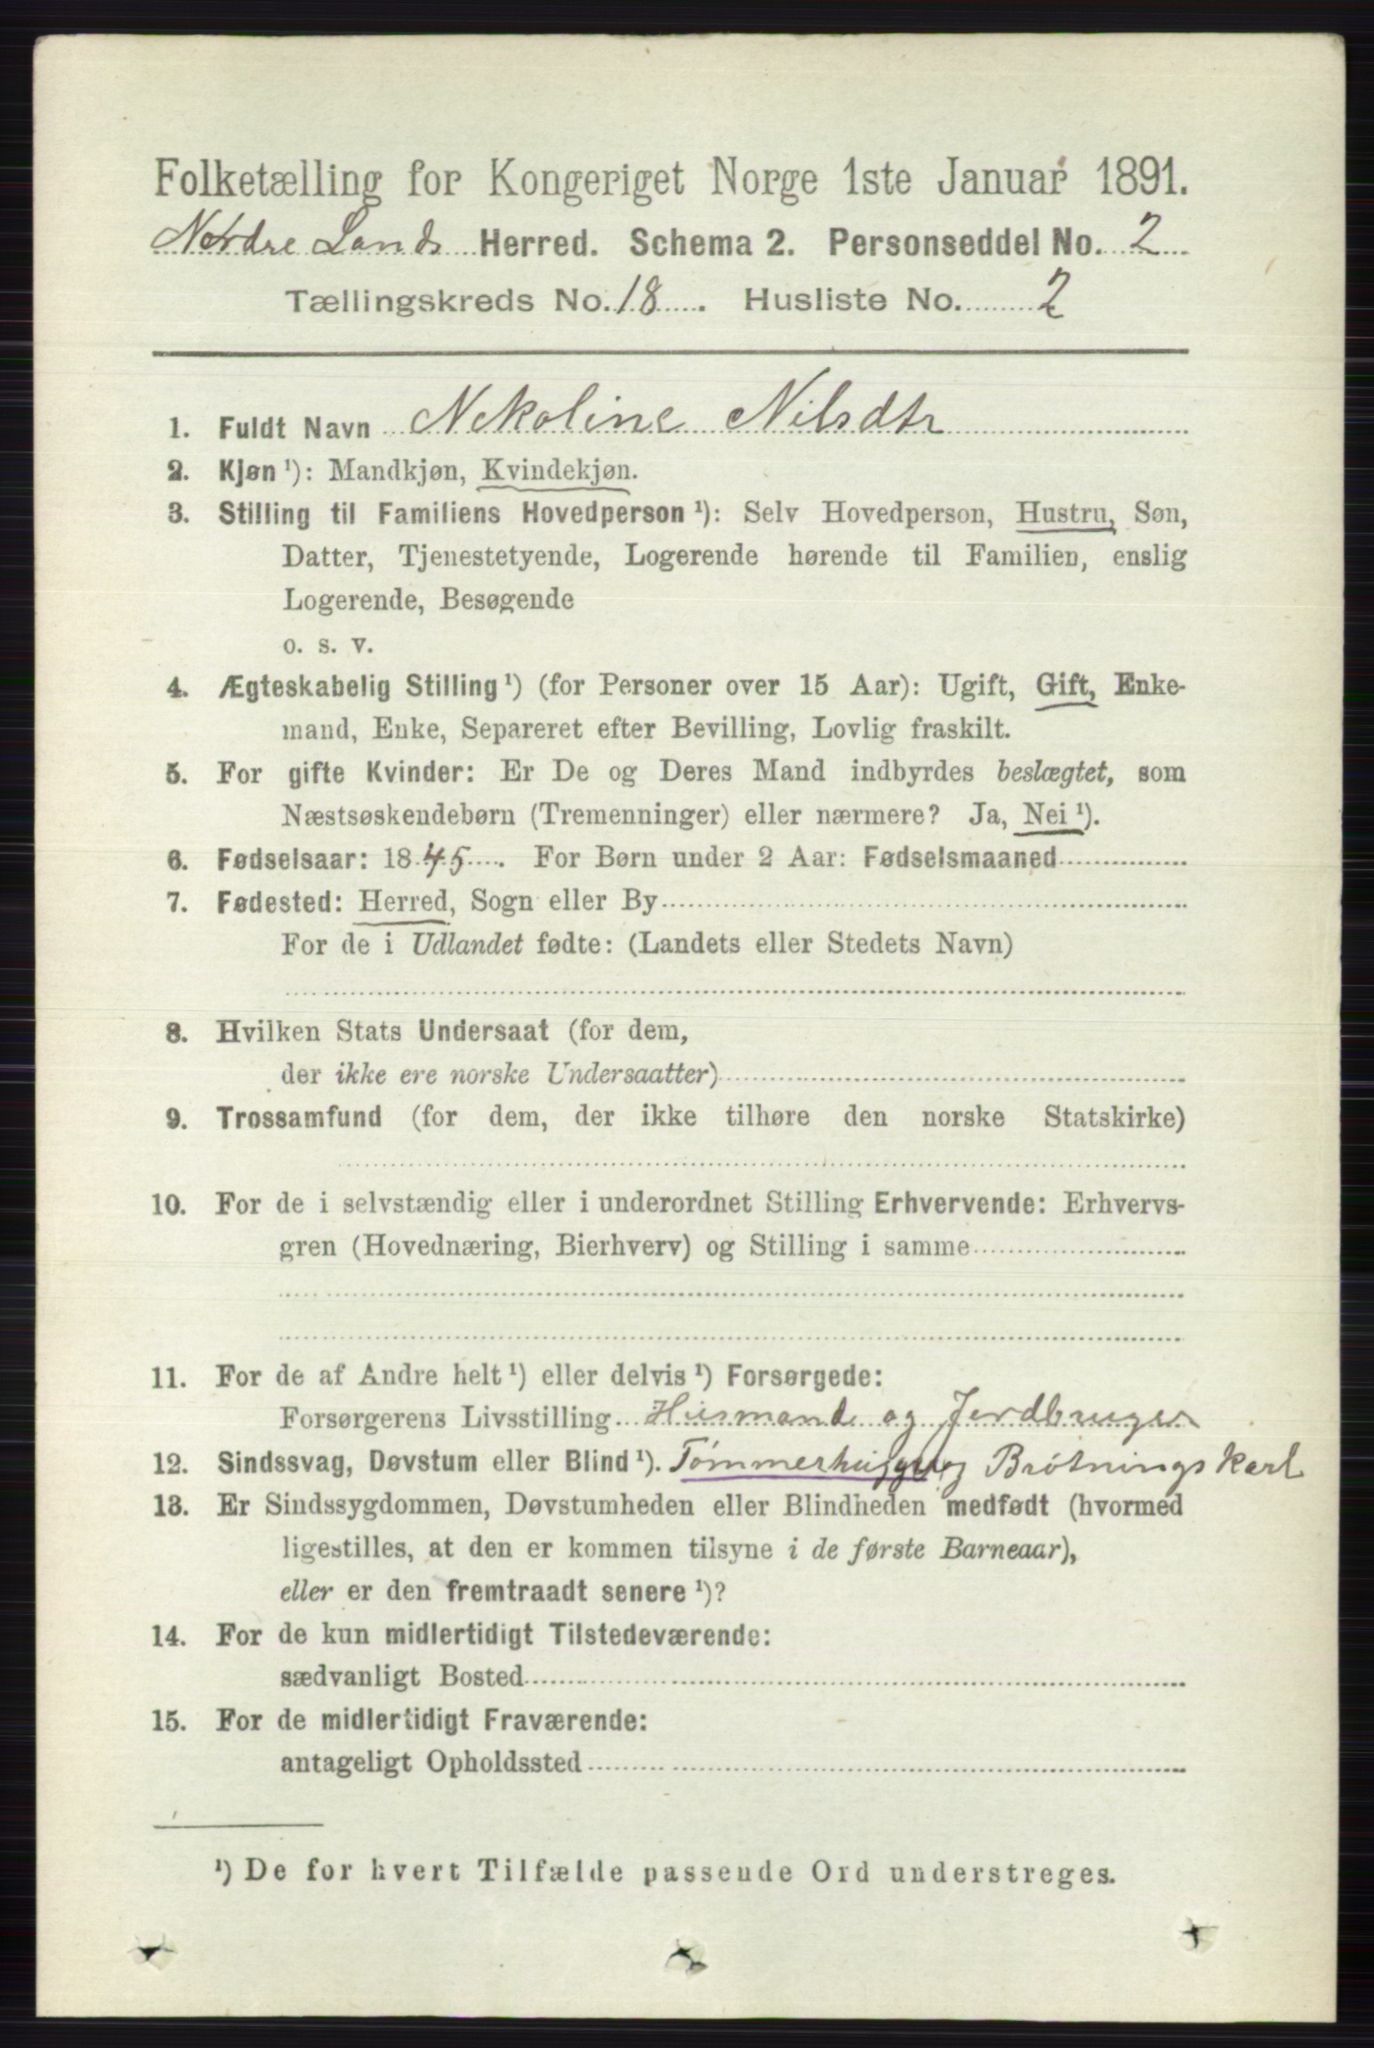 Folketælling for Kongeriget Norge 1ste Januar 1891.
Nordre Lands Herred. Schema 2. Personseddel No. 2
Tællingskreds No. 18. Husliste No. 2
1. Fuldt Navn Nekoline Nilsdtr
2. Kjøn ¹): Mandkjøn, Kvindekjøn.
3. Stilling til Familiens Hovedperson ¹): Selv Hovedperson, Hustru, Søn,
Datter, Tjenestetyende, Logerende hørende til Familien, enslig
Logerende, Besøgende
o. s. v.
4. Ægteskabelig Stilling ¹) (for Personer over 15 Aar): Ugift, Gift, Enke-
mand, Enke, Separeret efter Bevilling, Lovlig fraskilt.
5. For gifte Kvinder: Er De og Deres Mand indbyrdes beslægtet, som
Næstsøskendebørn (Tremenninger) eller nærmere? Ja, Nei ¹).
6. Fødselsaar: 1845. For Børn under 2 Aar: Fødselsmaaned
7. Fødested: Herred, Sogn eller By
For de i Udlandet fødte: (Landets eller Stedets Navn)
8. Hvilken Stats Undersaat (for dem,
der ikke ere norske Undersaatter)
9. Trossamfund (for dem, der ikke tilhøre den norske Statskirke)
10. For de i selvstændig eller i underordnet Stilling Erhvervende: Erhvervs-
gren (Hovednæring, Bierhverv) og Stilling i samme
11. For de af Andre helt ¹) eller delvis ¹) Forsørgede:
Forsørgerens Livsstilling Husmand og Jordbruger
12. Sindssvag, Døvstum eller Blind ¹). Tømmerhugger og Brøtningskarl
13. Er Sindssygdommen, Døvstumheden eller Blindheden medfødt (hvormed
ligestilles, at den er kommen tilsyne i de første Barneaar),
eller er den fremtraadt senere ¹)?
14. For de kun midlertidigt Tilstedeværende:
sædvanligt Bosted
15. For de midlertidigt Fraværende:
antageligt Opholdssted
¹) De for hvert Tilfælde passende Ord understreges.